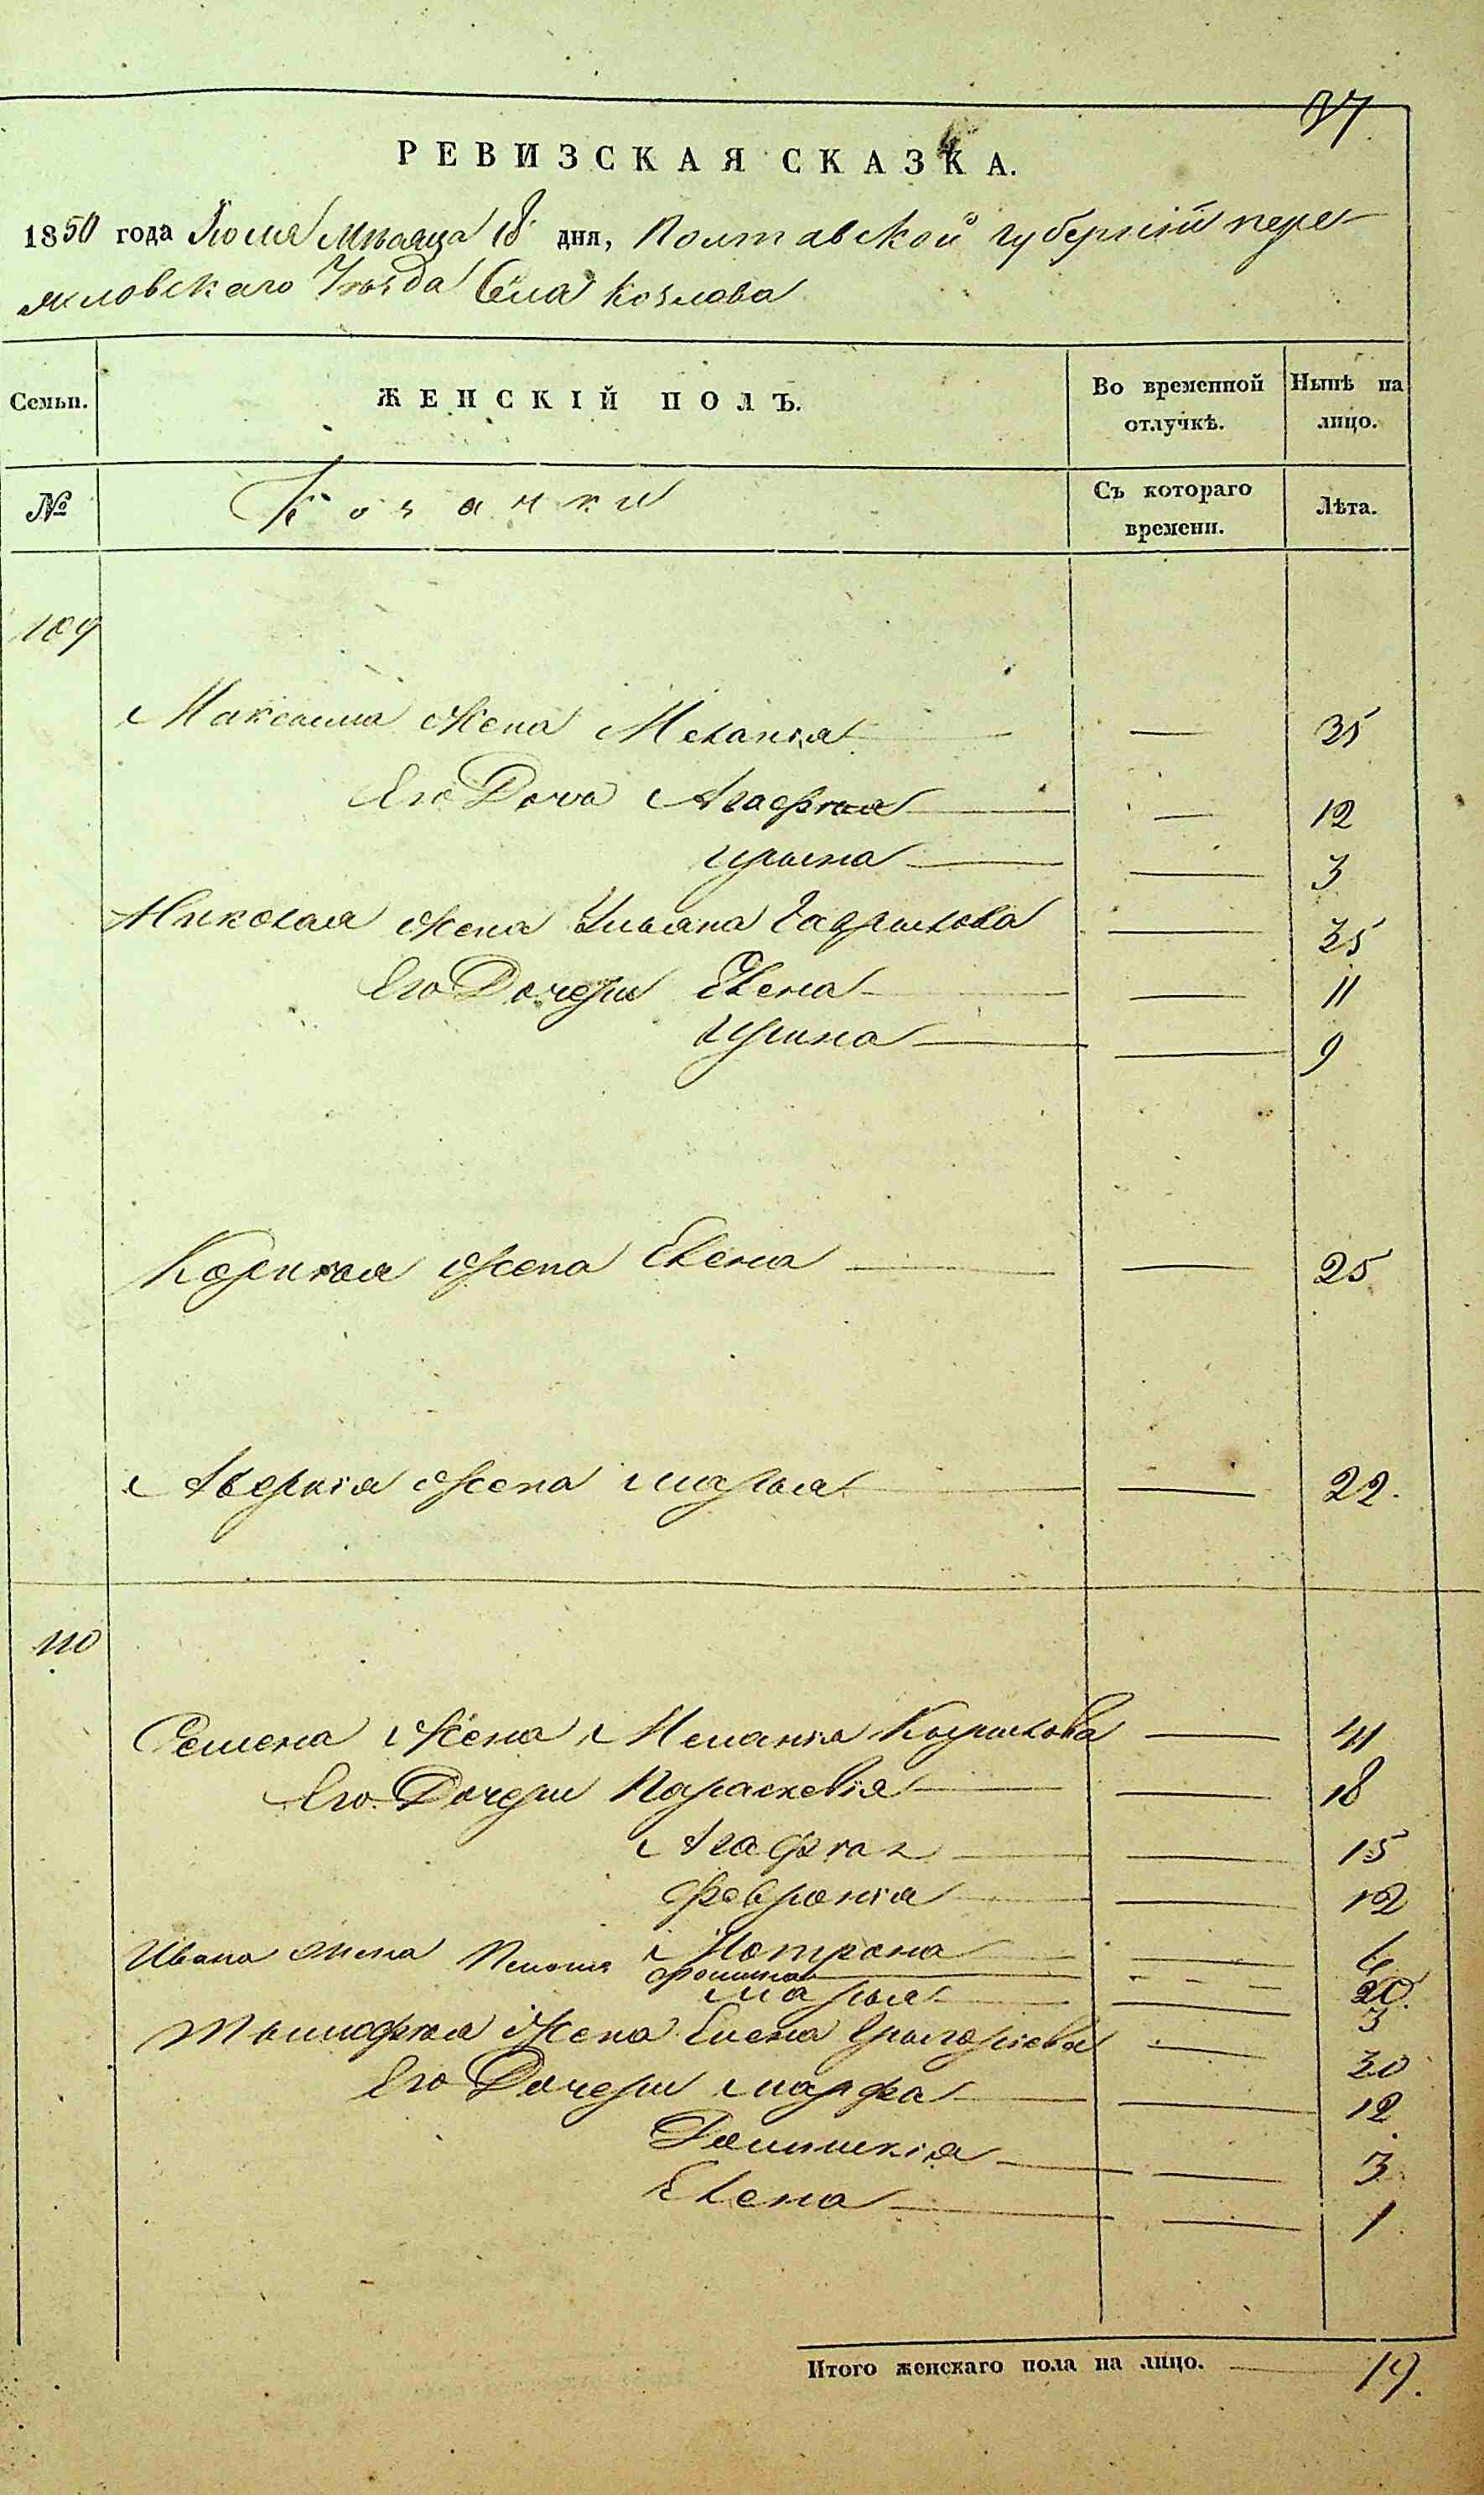 37
РЕВИЗСКАЯ СКАЗКА.
1850 года Июля Мѣсяца 18 дня, Полтавской губерніи пере-
яславскаго Уѣзда Села Козлова
Семьи. ЖЕНСКІЙ ПОЛЪ. Во временной отлучкѣ. Нынѣ на лицо.
№ Козачки Съ котораго времени. Лѣта.
109
Максима жена Меланія — 35
Его Дочь Агафия — 12
Ирина — 3
Николая жена Ульяна Гаврилова — 35
Его Дочери Елена — 11
Ирина — 9
жена Елена — 25
Аверкія жена Марья — 22.
110
Семена жена Меланія Кирилова — 41
Его Дочери Параскевія — 18
Агафия — 15
Февронія — 12
Мотрона — 6
Ивана жена Пелагия — 20
Марья — 3
Тимофея жена Елена Григорьева — 30
Его Дочери Марфа — 12
— 3
Елена — 1
Итого женскаго пола на лицо. — 19.